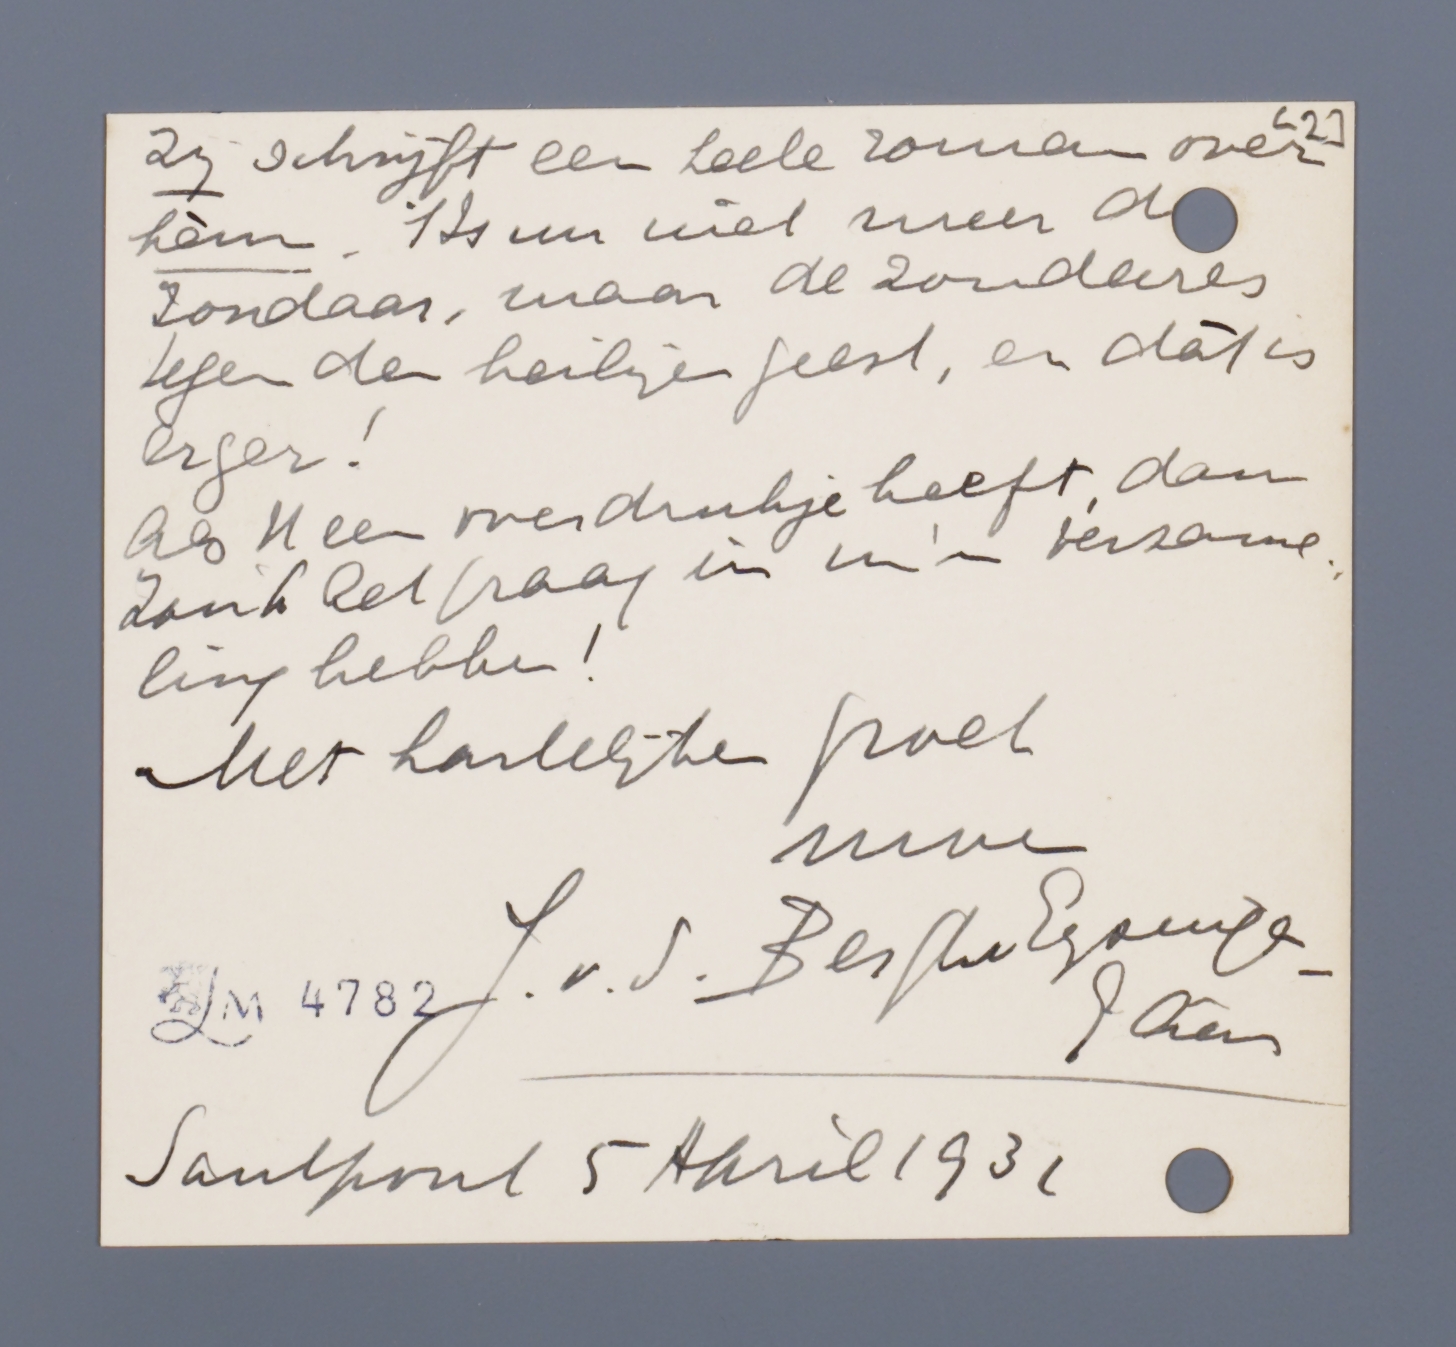 [2]
Zij schrijft een heele roman over
hèm. 't Is nu niet meer de
zondaar, maar de zondares
tegen den heiligen geest, en dàt is
erger!
Als U een overdrukje heeft, dan
zou ik het graag in m'n verzame-
ling hebben!
Met hartelijken groet
uwe
J. v. d. Bergh v Eysinga-
Elias
LM 4782
Santpoort 5 April 1931